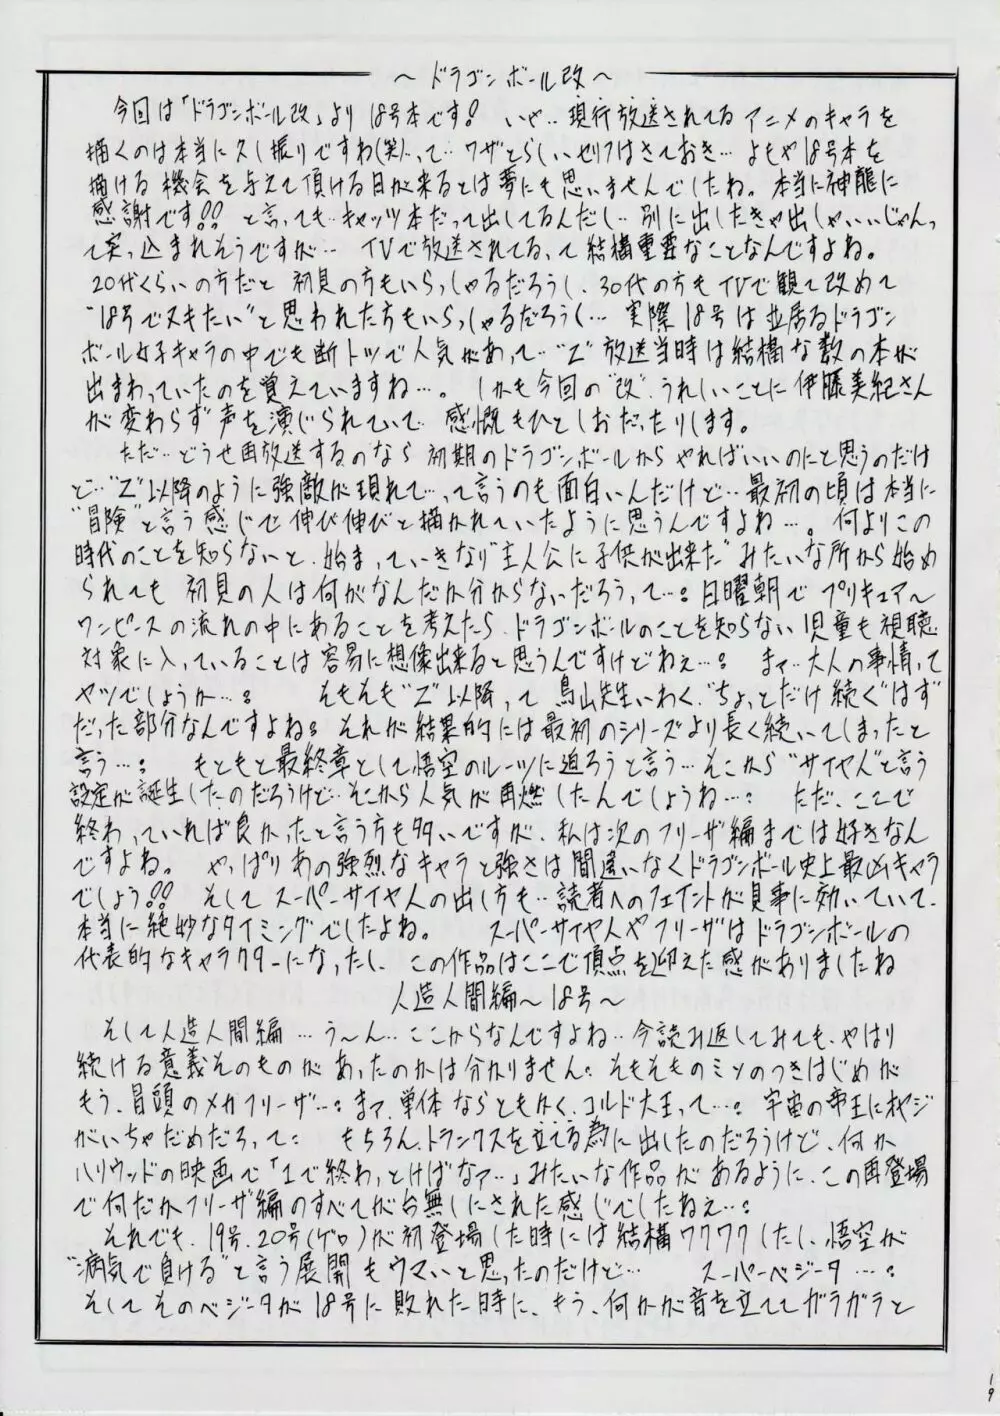 ～ドラゴンボール改～
今回は「ドラゴンボール改」より18号本です! いや‥現行放送されてるアニメのキャラを
描くのは本当に久し振りですね(笑)‥って‥ワザとらしいセリフはさておき…よもや18号本を
描ける機会を与えて頂ける日が来るとは夢にも思いませんでしたね。本当に神龍に
感謝です!! と言っても‥キャッツ本だって出してるんだし‥別に出したきゃ出しゃいいじゃんっ
て突っ込まれそうですが… TVで放送されてる、って結構重要なことなんですよね。
20代くらいの方だと初見の方もいらっしゃるだろうし、30代の方もTVで観て改めて
"18号でヌキたい"と思われた方もいらっしゃるだろうし… 実際18号は並居るドラゴン
ボール女子キャラの中でも断トツで人気があって‥"Z"放送当時は結構な数の本が
出まわっていたのを覚えていますね…。しかも今回の"改"、うれしいことに伊藤美紀さん
が変わらず声を演じられていて、感慨もひとしおだったりします。
ただ‥どうせ再放送するのなら初期のドラゴンボールからやればいいのにと思うのだけ
ど…"Z"以降のように強敵が現れて…って言うのも面白いんだけど‥最初の頃は本当に
"冒険"と言う感じで伸び伸びと描かれていたように思うんですよね…。何よりこの
時代のことを知らないと、始まっていきなり"主人公に子供が出来た"みたいな所から始め
られても初見の人は何がなんだか分からないだろうって…。日曜朝でプリキュア～
ワンピースの流れの中にあることを考えたら、ドラゴンボールのことを知らない児童も視聴
対象に入っていることは容易に想像出来ると思うんですけどねぇ…。 まァ‥大人の事情って
ヤツでしょうか…。 そもそも"Z"以降って鳥山先生いわく、"ちょっとだけ続く"はず
だった部分なんですよね。それが結果的には最初のシリーズより長く続いてしまったと
言う…。 もともと最終章として悟空のルーツに迫ろうと言う…そこから"サイヤ人"と言う
設定が誕生したのだろうけど‥そこから人気が再燃したんでしょうね…。 ただ、ここで
終わっていれば良かったと言う方も多いですが、私は次のフリーザ編までは好きなん
ですよね。 やっぱりあの強烈なキャラと強さは間違いなくドラゴンボール史上最凶キャラ
でしょう!! そしてスーパーサイヤ人の出し方も‥読者へのフェイントが見事に効いていて、
本当に絶妙なタイミングでしたよね。 スーパーサイヤ人やフリーザはドラゴンボールの
代表的なキャラクターになったし、この作品はここで頂点を迎えた感がありましたね
人造人間編～18号～
そして人造人間編…う～ん‥ここからなんですよね‥今読み返してみても、やはり
続ける意義そのものがあったのかは分かりません。そもそものミソのつきはじめが
もう、冒頭のメカフリーザ…。まァ、単体ならともかく、コルド大王って…。宇宙の帝王にオヤジ
がいちゃだめだろって。 もちろん、トランクスを立てる為に出したのだろうけど、何か
ハリウッドの映画で「1で終わっとけばなァ…」みたいな作品があるように、この再登場
で何だかフリーザ編のすべてが台無しにされた感じでしたねぇ…。
それでも、19号、20号(ゲロ)が初登場した時には結構ワクワクしたし、悟空が
"病気で負ける"と言う展開もウマいと思ったのだけど… スーパーベジータ…。
そしてそのベジータが18号に敗れた時に、もう、何かが音を立ててガラガラと
19